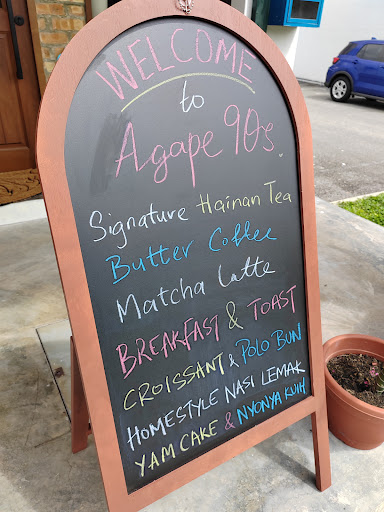 WELCOME
to
Agape 90's
Signature Hainan Tea
Butter Coffee
Matcha Latte
BREAKFAST & TOAST
CROISSANT & POLO BUN
HOMESTYLE NASI LEMAK
YAM CAKE & NYONYA KUIH